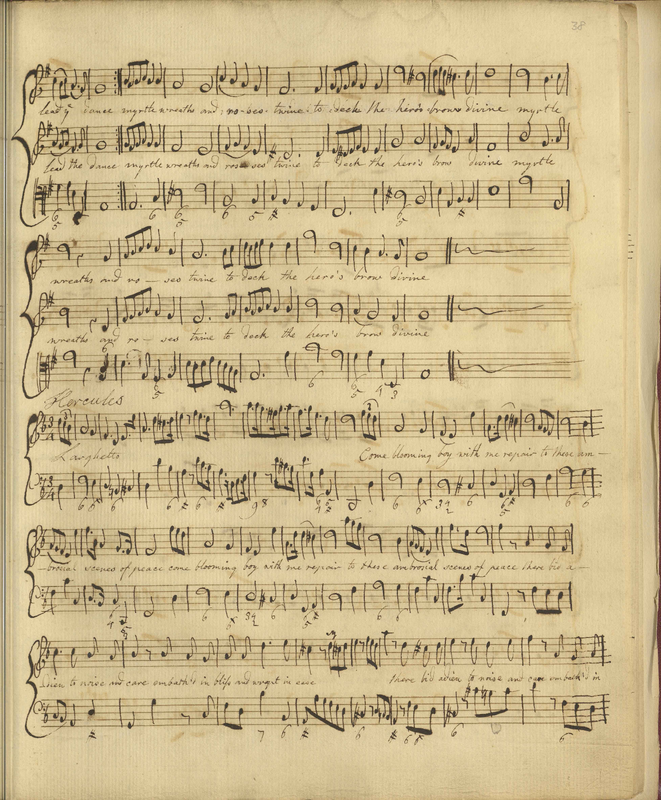 38
lead yᵉ dance myrtle wreaths and ro-ses twine to deck the hero's brow divine myrtle
lead the dance myrtle wreaths and roses twine to deck the hero's brow divine myrtle
wreaths and ro - ses twine to deck the hero's brow divine
wreaths and ro - ses twine to deck the hero's brow divine
Hercules
Larghetto Come blooming boy with me repair to these am -
brosial scenes of peace come blooming boy with me repair to these ambrosial scenes of peace there bid a -
dien to noise and care embath'd in bliss and wrapt in ease there bid adien to noise and care embath'd in